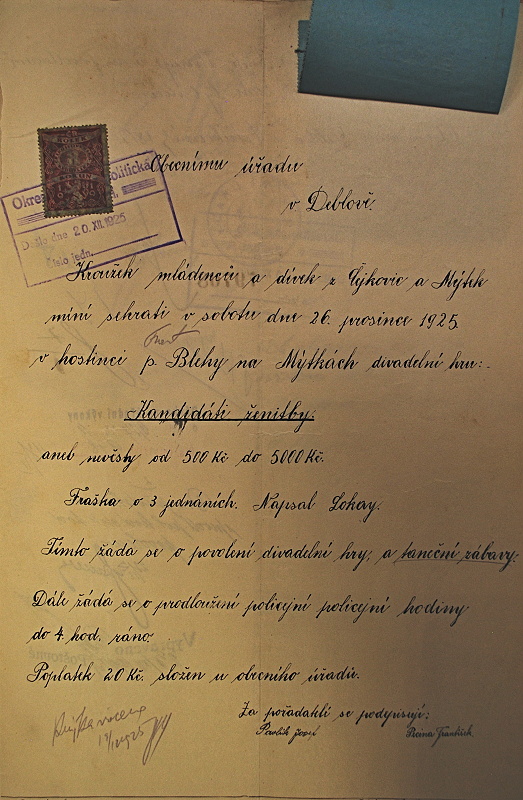 Okres olitická
Došlo dne 20.XII.1925
Číslo jedn.
Obecnímu úřadu
v Deblově.
Kroužek mládenců a dívek z Lýkovic a Mýtek
míní sehráti v sobotu dne 26. prosince 1925
v hostinci p. Blehy na Mýtkách divadelní hru:-
Kandidáti ženitby.
aneb nevěsty od 500 Kč do 5000 Kč.
Fraška o 3 jednáních. Napsal Lokay.
Tímto žádá se o povolení divadelní hry, a taneční zábavy.
Dále žádá se o prodloužení policejní policejní hodiny
do 4. hod. ráno.
Poplatek 20 Kč. složen u obecního úřadu.
Za pořadatelé se podpisují:
Pavlík Josef
František